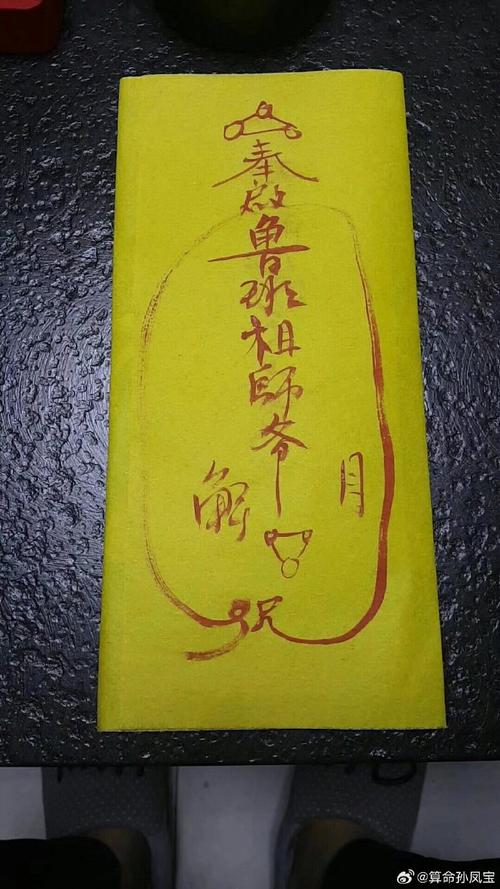 奉啟魯班祖師爷
解
月
咒
@算命孙凤宝